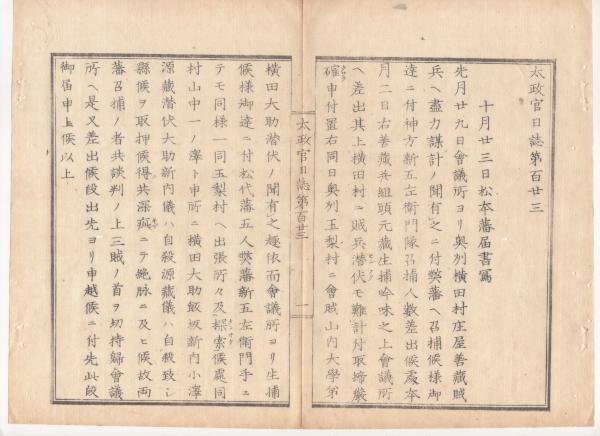 太政官日誌第百廿三
十月廿三日松本藩届書冩
先月廿九日會議所ヨリ奥州横田村庄屋善藏賊
兵ヘ盡力謀計ノ聞有之ニ付弊藩ヘ召捕候様御
達ニ付神方新五左衛門隊召捕人數差出候處本
月二日右善藏兵組頭元藏生捕吟味之上會議所
ヘ差出其上横田村ニ賊兵潜伏モ難計付取締嚴
確申付置右同日奥州玉梨村ニ會賊山内大學第
太政官日誌第百廿三
一
横田大助潜伏ノ聞有之趣依而會議所ヨリ生捕
候様御達ニ付松代藩五人弊藩新五左衛門手ニ
テモ同様一同玉梨村ヘ出張所々及探索候處同
村山中一ノ澤ト申所ニ横田大助飯坂新内小澤
源藏潜伏大助新内儀ハ自殺源藏儀ハ自殺致シ
縣候ヲ取押候得共深痍ニテ絶脉ニ及ヒ候故両
藩召捕ノ者共談判ノ上三賊ノ首ヲ切持歸會議
所ヘ是又差出候段出先ヨリ申越候ニ付先此段
御届申上候以上